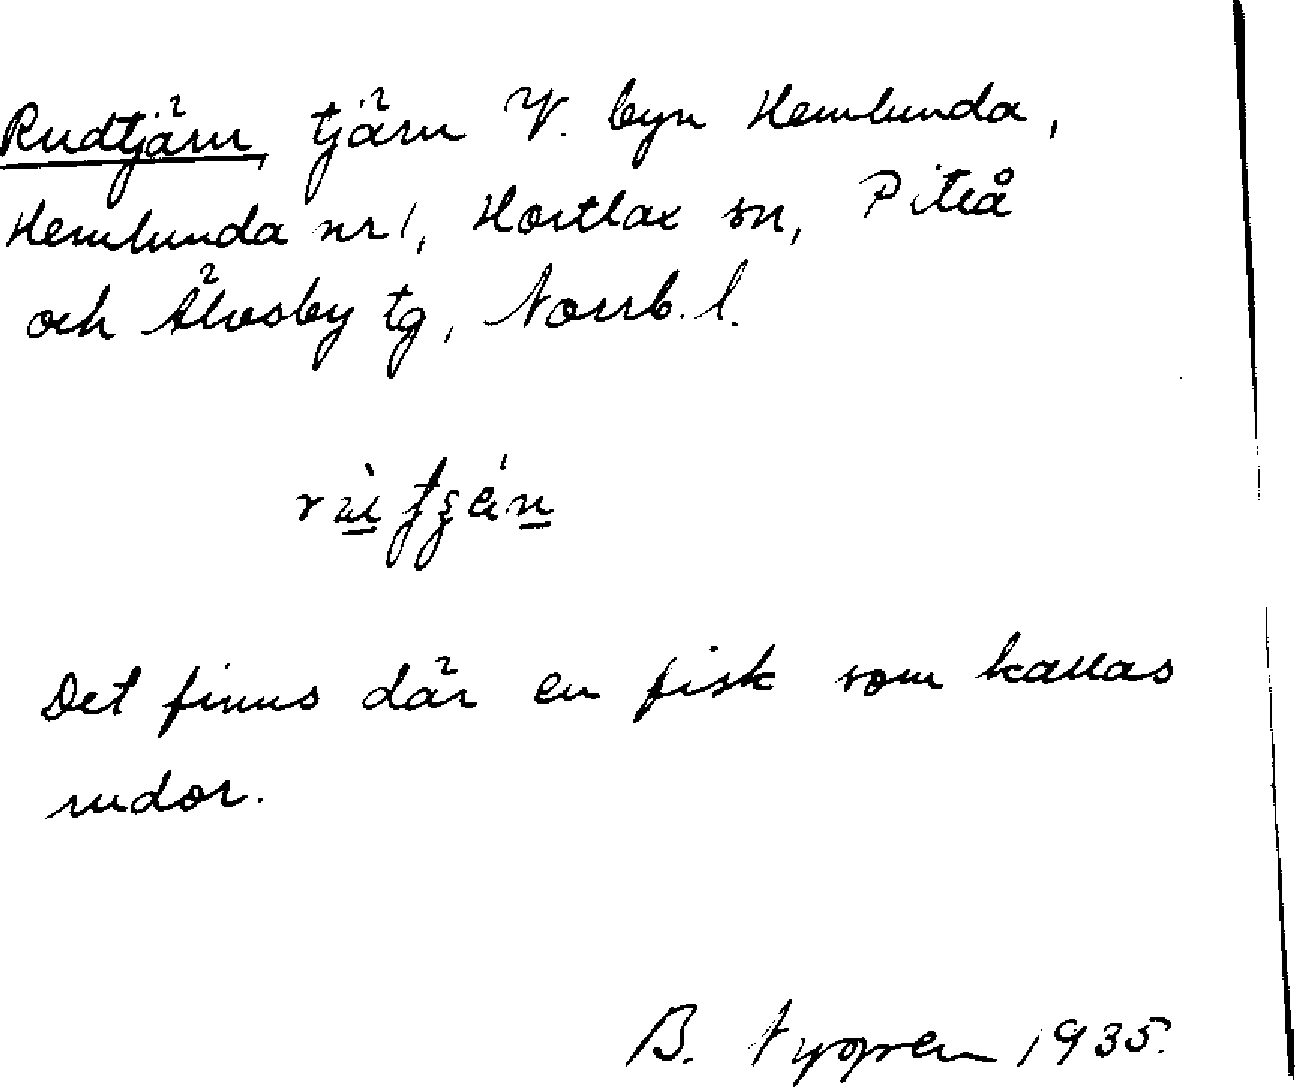 Rudtjärn, tjärn V. byn Hemlunda,
Hemlunda nr 1, Hortlax sn, Piteå
och Älvsby tg, Norrb. l.
Det finns där en fisk som kallas
rudor.
B. Nygren 1935.